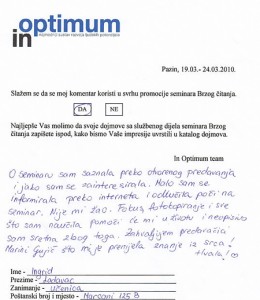 in optimum
Pazin, 19.03.- 24.03.2010.
Slažem se da se moj komentar koristi u svrhu promocije seminara Brzog čitanja.
DA NE
Najljepše Vas molimo da svoje dojmove sa službenog dijela seminara Brzog
čitanja zapišete ispod, kako bismo Vaše impresije uvrstili u katalog dojmova.
In Optimum team
O seminaru sam saznala preko otvorenog predavanja
i jako sam se zainteresirala. Malo sam se
informirala preko interneta i odlučila poći na
seminar. Nije mi žao. Fokus, fotočitanje i sve
što sam naučila pomoći će mi u životu i neopisivo
sam sretna zbog toga. Zahvaljujem predavačici
Mariki Gujić što mi je prenijela znanje iz srca!
Hvala!
Ime - Ingrid
Prezime -
Zanimanje - učenica
Poštanski broj i mjesto - Marčani 125 B